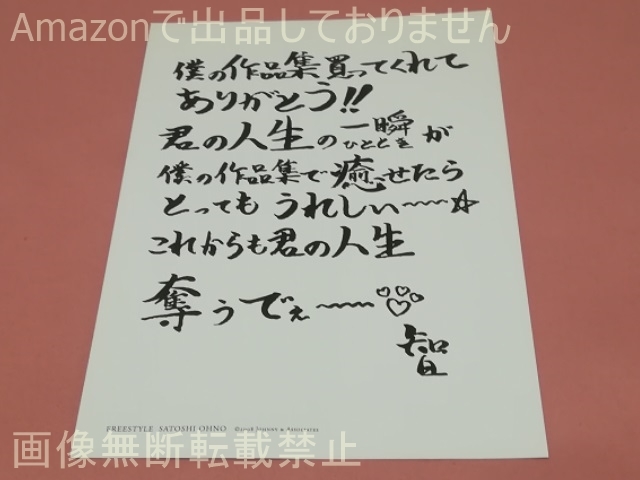 Amazonで出品しておりません
僕の作品集買ってくれて
ありがとう!!
君の人生の一瞬が
ひととき
僕の作品集で癒せたら
とっても うれしい〜〜☆
これからも君の人生
奪うでぇ〜〜♡
智
FREESTYLE SATOSHI OHNO
画像無断転載禁止